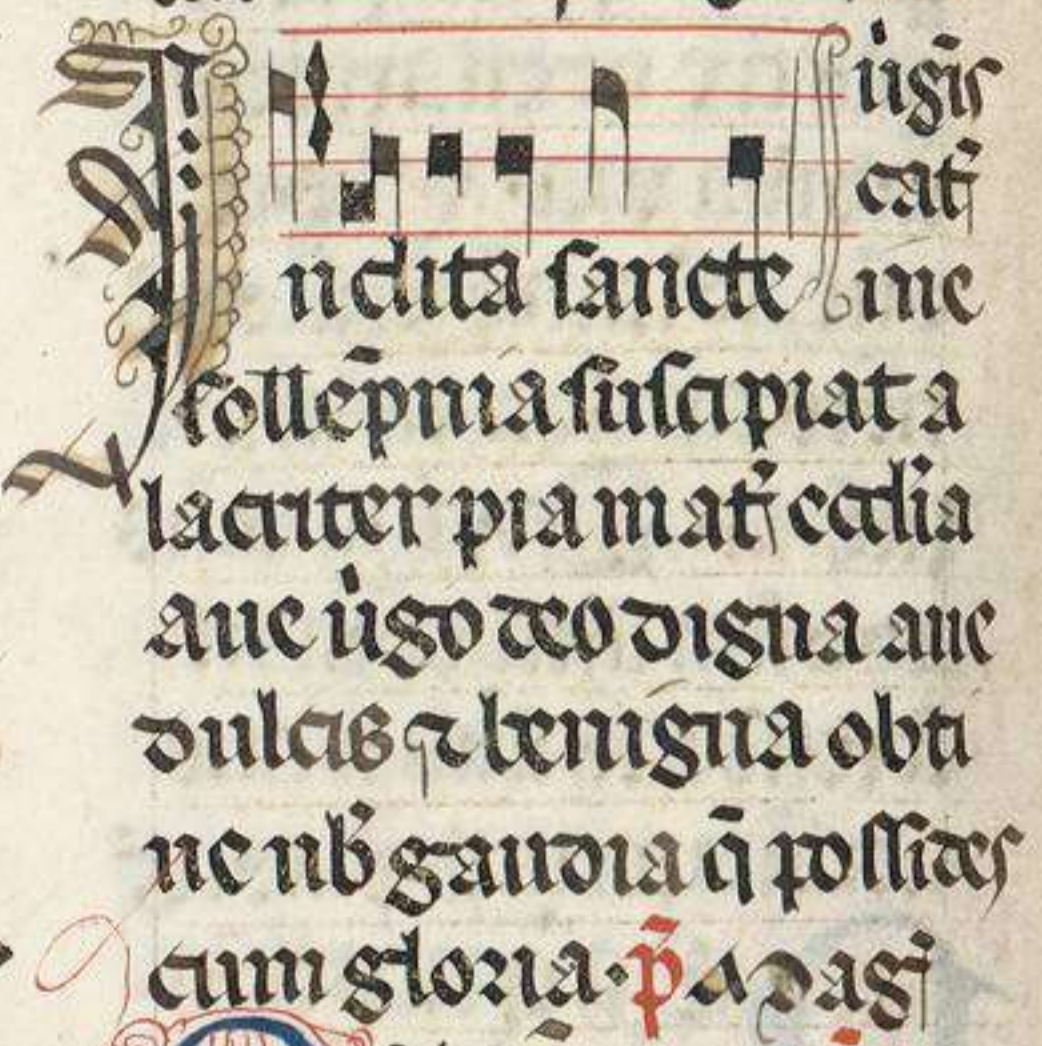 Inclita sancte
uiͥgīs
cat᷑
ine
sollēpnia suscipiat a
lacriter pia mat᷑ eccl̓ia
aue uͥgo deo digna aue
dulcis ⁊ benigna obti
ne nb̓ gaudia q̄ possides
cum gloria · p̄ Mag᷑